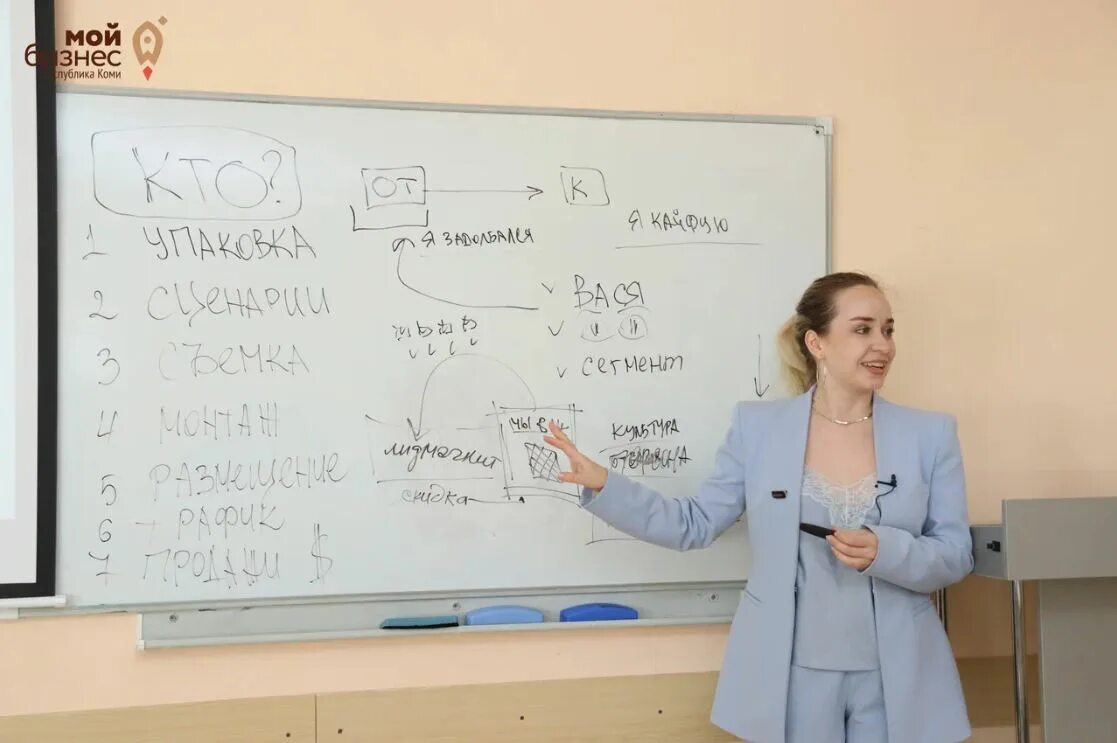 мой
бизнес
Республика Коми
КТО?
1 УПАКОВКА
2 СЦЕНАРИИ
3 СЪЕМКА
4 МОНТАЖ
5 РАЗМЕЩЕНИЕ
6 ТРАФИК
7 ПРОДАЖИ $
ОТ
К
Я ЗАДОЛБАЛСЯ
Я КАЙФУЮ
ВАСЯ
СЕГМЕНТ
ЛИДМАГНИТ
скидка
КУЛЬТУРА